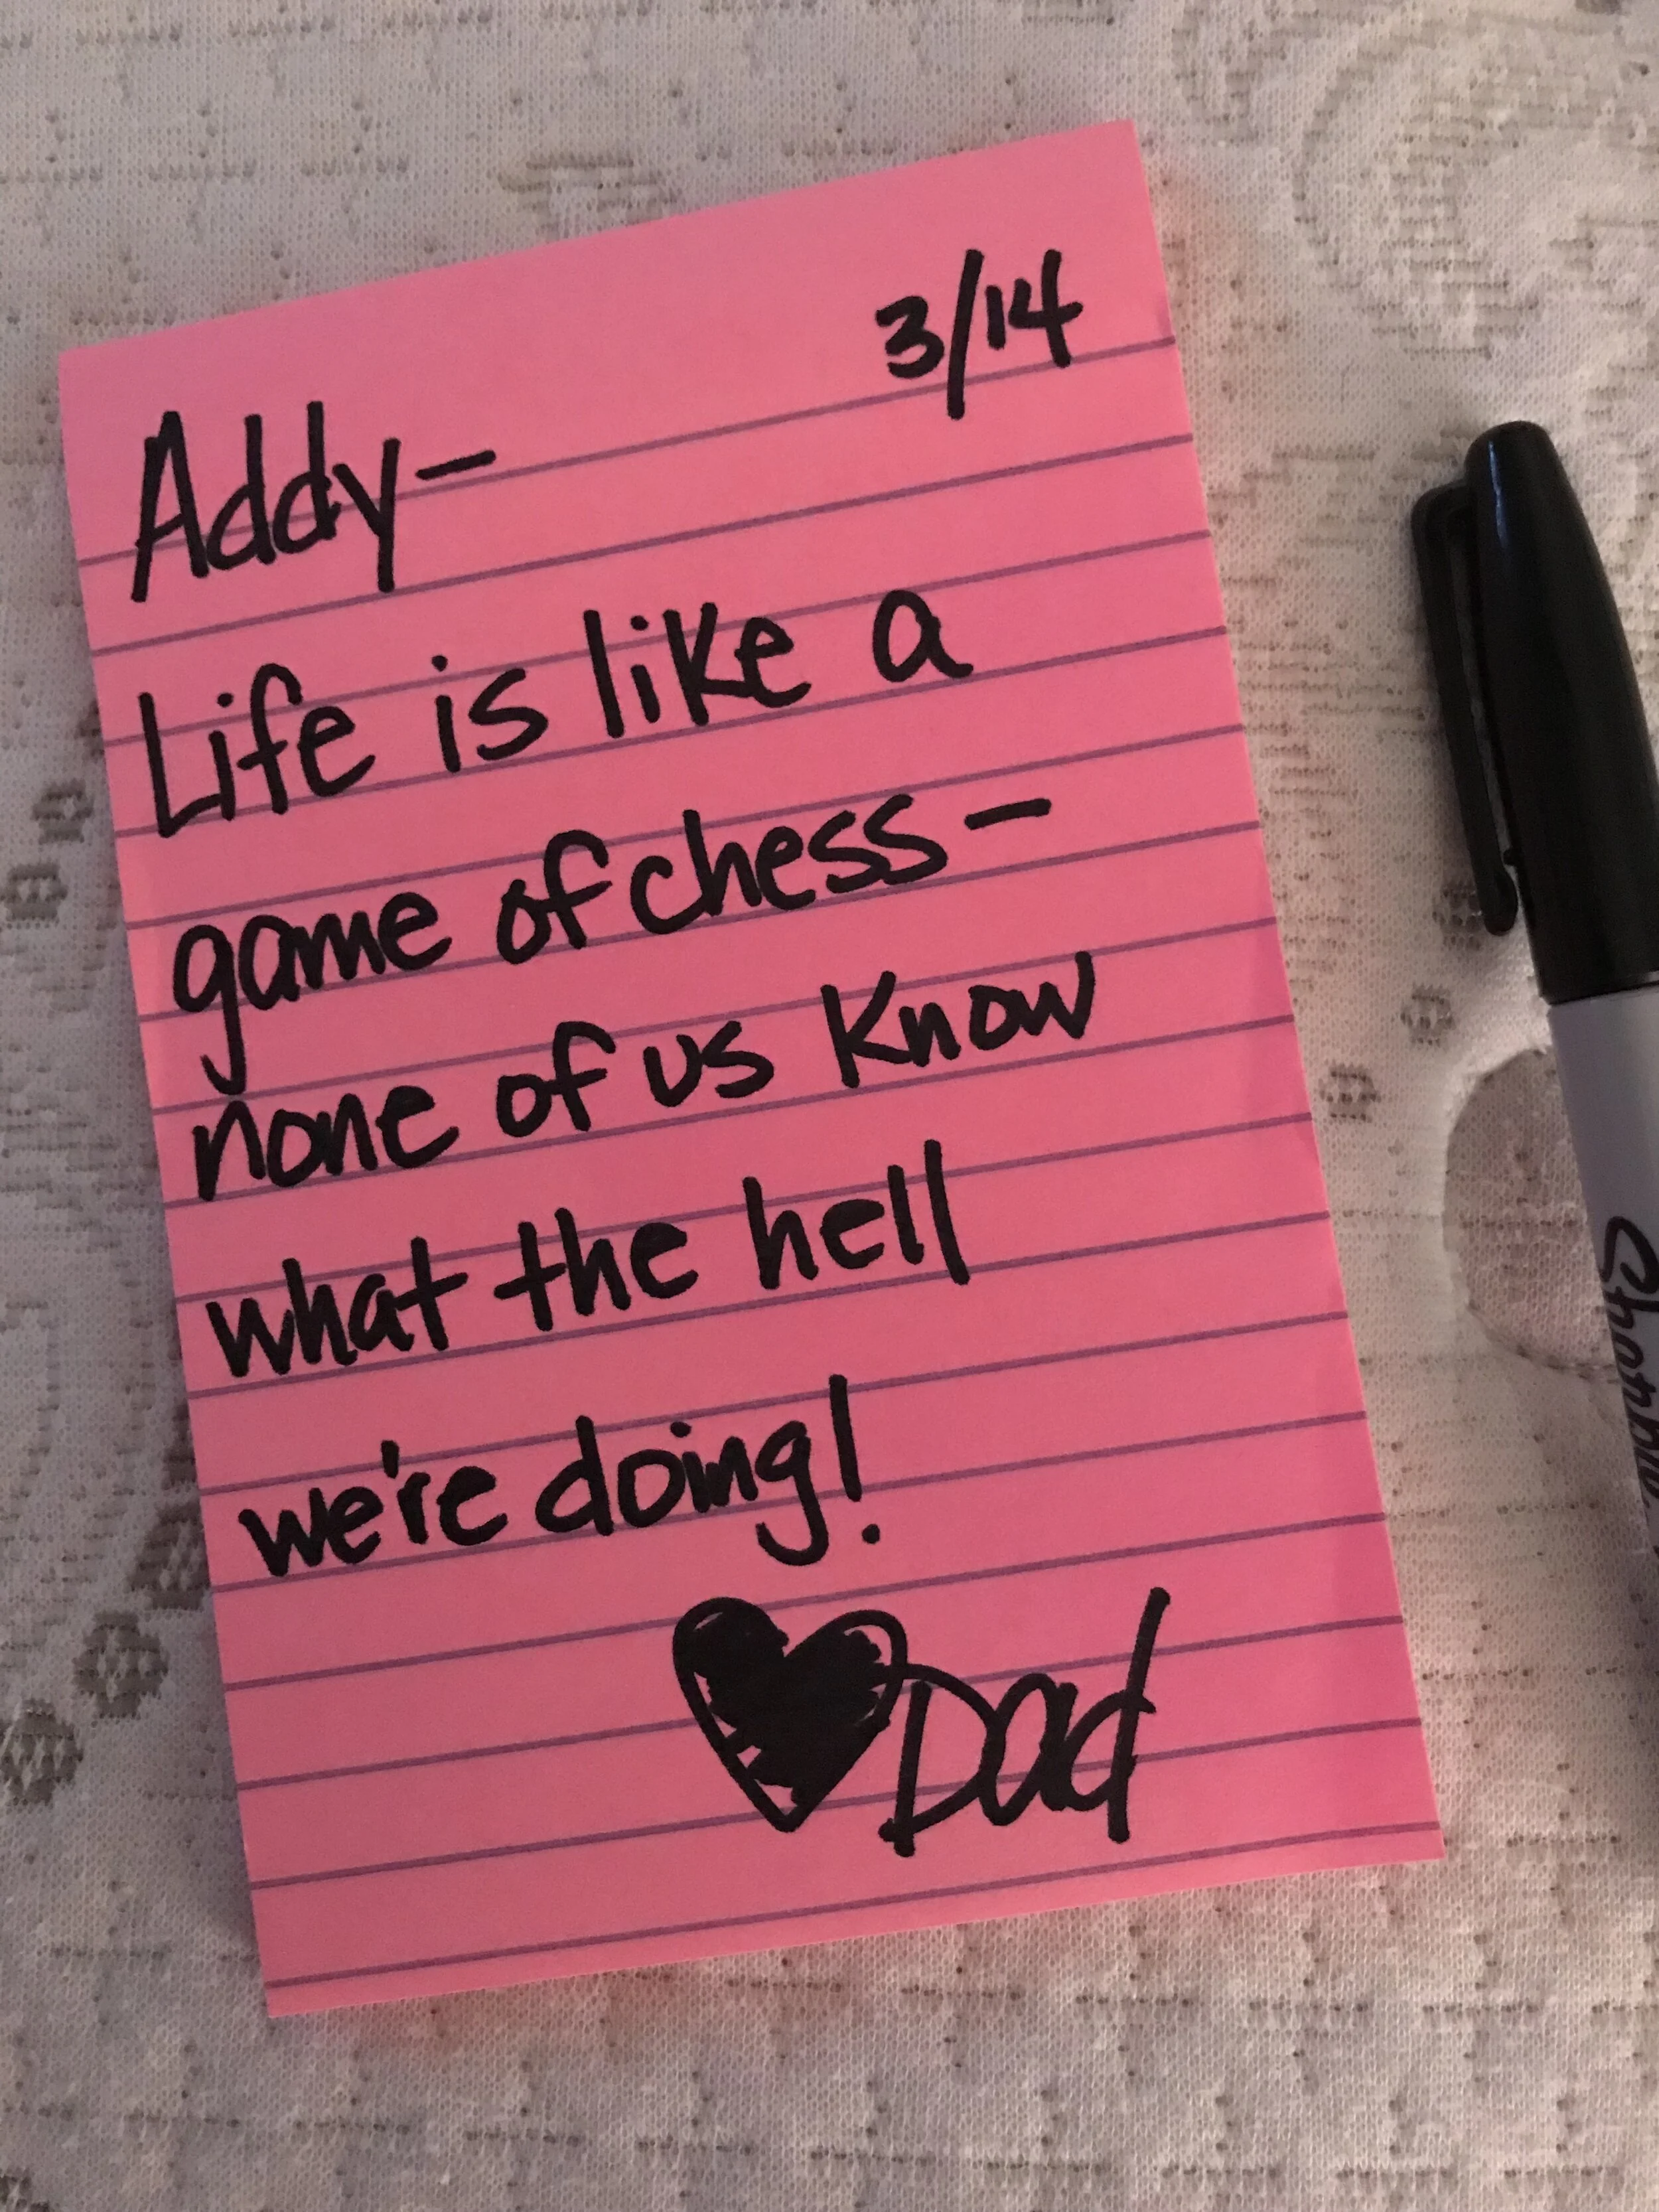 3/14
Addy-
Life is like a
game of chess-
none of us know
what the hell
we're doing!
♥Dad
Sharpie